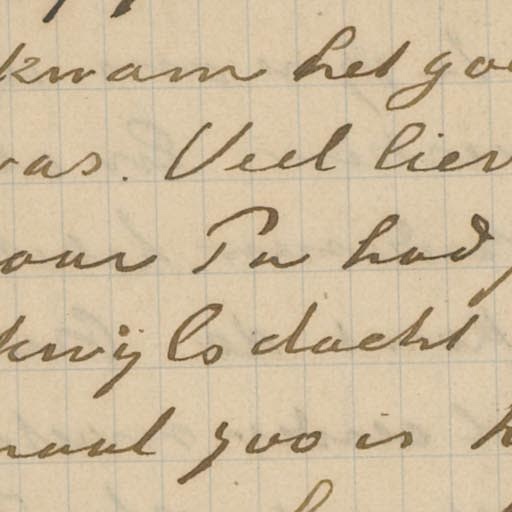 kwam het goe
was. Veel liev
oar Pa had
kwijls dacht
maal zoo is h